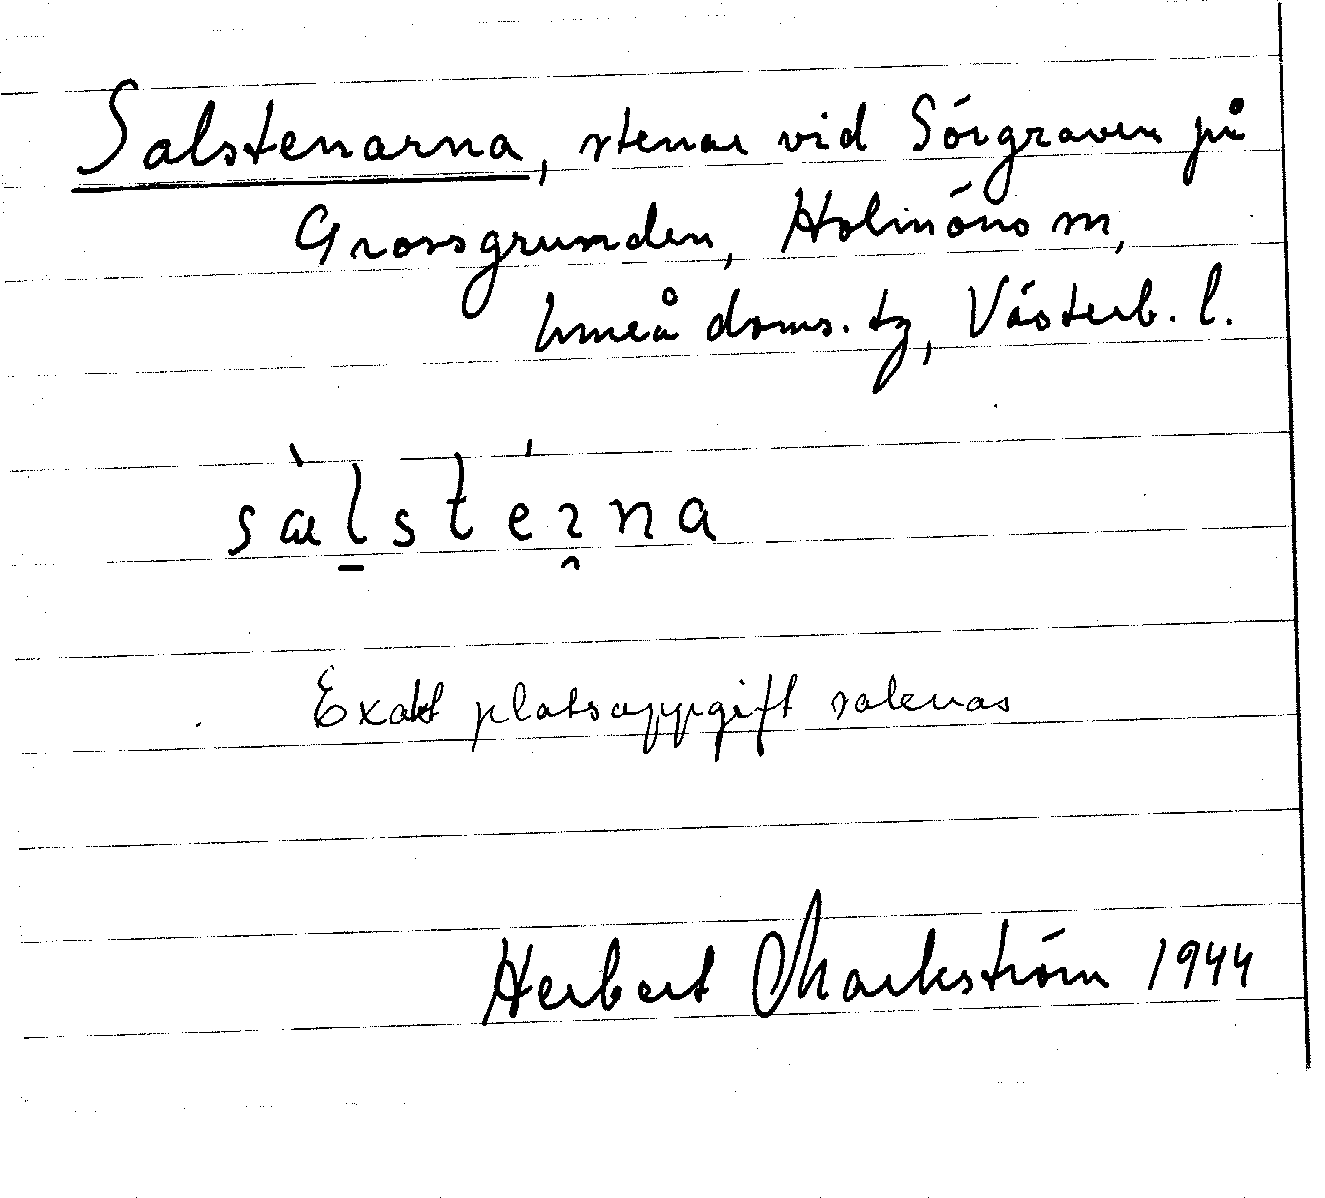 Salstenarna, stenar vid Sörgraven på
Grossgrunden, Holmöns sn,
Umeå doms. tg, Västerb. l.
sæ̀l̠sté̂rna
Exakt platsuppgift saknas
Herbert Markström 1944